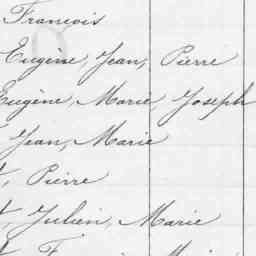 François
Eugène, Jean, Pierre
Eugène, Marie, Joseph
Jean, Marie
Pierre
Julien, Marie